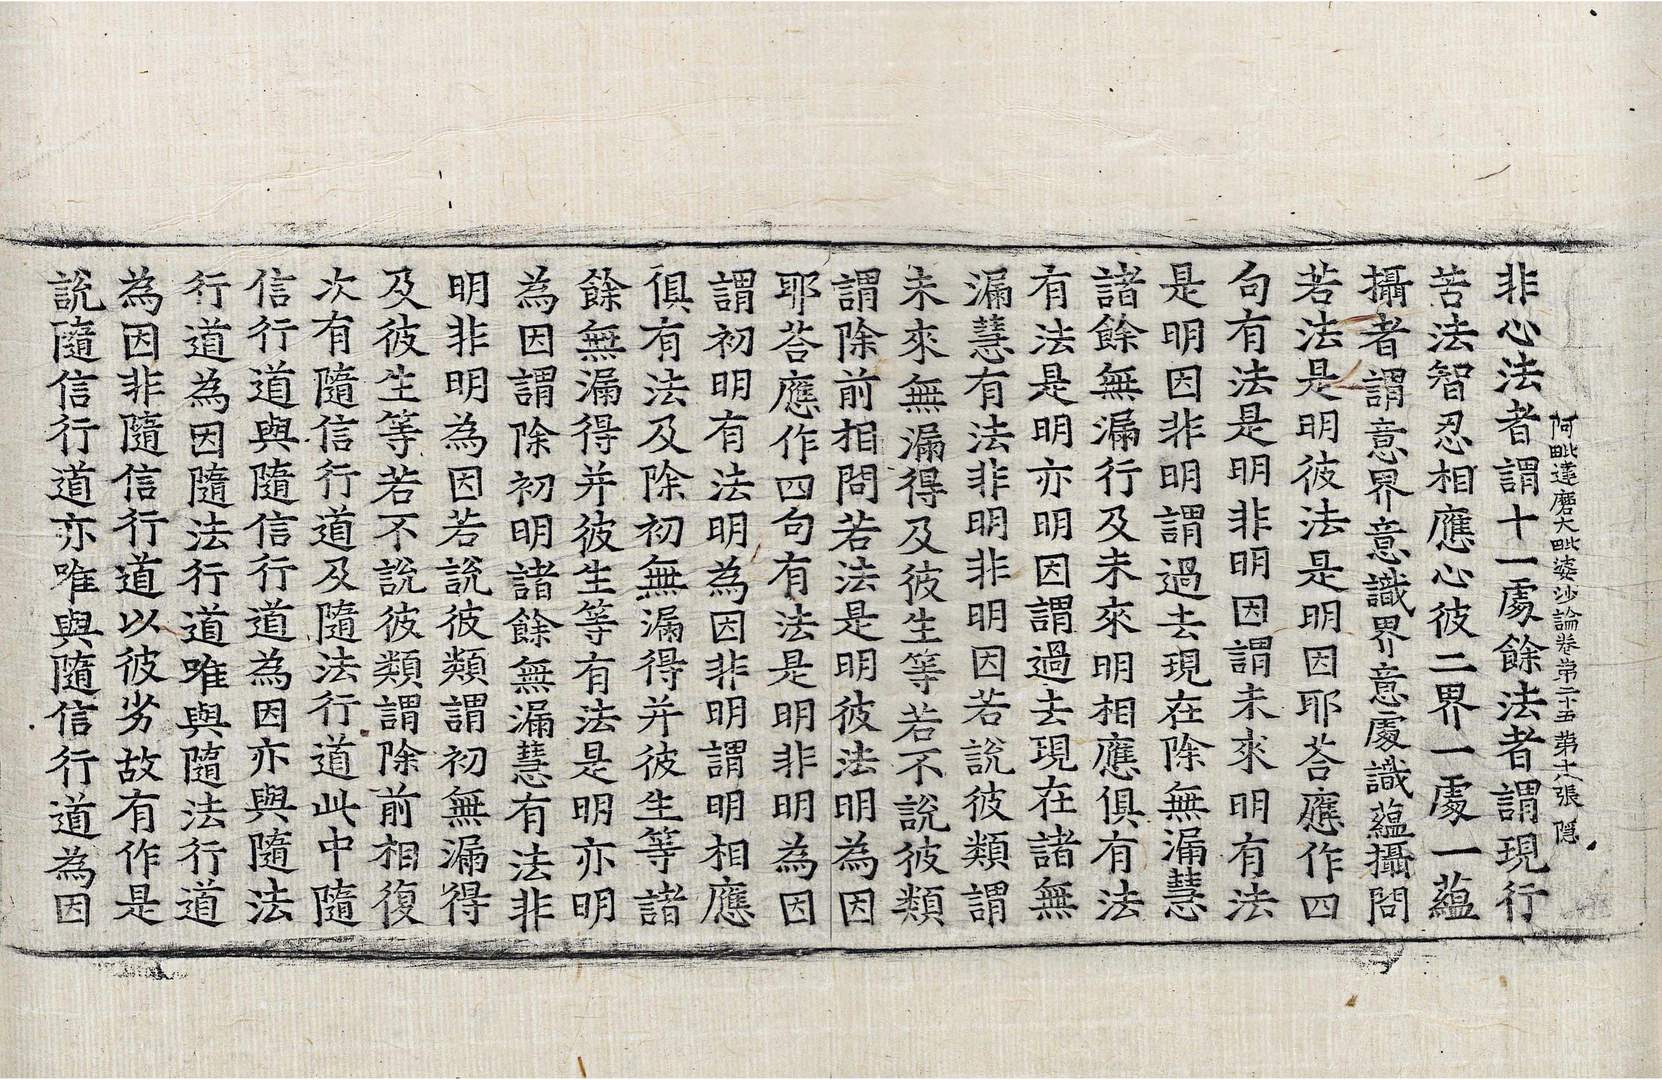 阿毗達磨大毗婆沙論卷第二十五 第張 隱
非心法者謂十一處餘法者謂現行
苦法智忍相應心彼二界一處一蘊
攝者謂意界意識界意處識蘊攝問
若法是明彼法是明因耶荅應作四
句有法是明非明因謂未來明有法
是明因非明謂過去現在除無漏慧
諸餘無漏行及未來明相應俱有法
有法是明亦明因謂過去現在諸無
漏慧有法非明非明因若說彼類謂
未來無漏得及彼生等若不說彼類
謂除前相問若法是明彼法明為因
耶荅應作四句有法是明非明為因
謂初明有法明為因非明謂明相應
俱有法及除初無漏得并彼生等諸
餘無漏得并彼生等有法是明亦明
為因謂除初明諸餘無漏慧有法非
明非明為因若說彼類謂初無漏得
及彼生等若不說彼類謂除前相復
次有隨信行道及隨法行道此中隨
信行道與隨信行道為因亦與隨法
行道為因隨法行道唯與隨法行道
為因非隨信行道以彼劣故有作是
說隨信行道亦唯與隨信行道為因